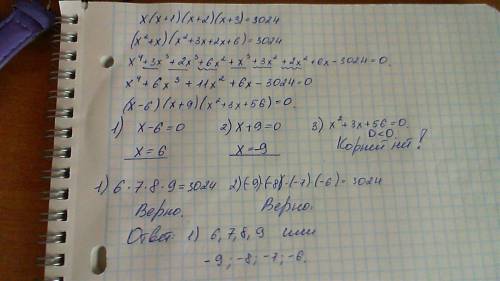 x(x+1)(x+2)(x+3)=3024
(x²+x)(x²+3x+2x+6)=3024
x⁴+3x³+2x³+6x²+x³+3x²+2x²+6x-3024=0.
x⁴+6x³+11x²+6x-3024=0
(x-6)(x+9)(x²+3x+56)=0.
1) x-6=0 2) x+9=0 3) x²+3x+56=0.
x=6 x=-9 D<0.
Корней нет!
1) 6·7·8·9=3024 2)(-9)(-8)·(-7)(-6)=3024
Верно. Верно.
Ответ: 1) 6,7,8,9 или
-9;-8;-7;-6.